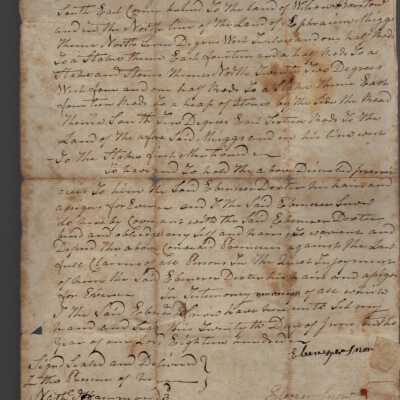 South East Corner bound to the Land of
and in the North line of the Land of Ephraim
thence North Two Degrees West Twelve and one half Rods
To a Stake thence East fourteen and a half Rods To a
Stake and Stones thence North Twenty Two Degrees
West four and one half Rods To a Stake thence East
fourteen Rods To a heap of Stones by the Side the Road
Thence South Two Degrees East Sixteen Rods To the
Land of the afore Said and in his line west
To the Stake first mentioned
To have and To hold the above Described premi
ces To him the Said Ebenezer Dexter his heirs and
assigns for Ever and I the Said Ebenezer Snow
do hereby Covenant with the Said Ebenezer Dexter
and oblidge my Self and heirs To warrant and
Defend the above against the Law
full Claims of all Persons To The Quiet
of him the Said Ebenezer Dexter his heirs and assigns
for Ever In Testimony of all which
I the Said Ebenezer Snow have here unto Set my
hand and Seal this Twentyth Day of June in the
Year of our Lord Eighteen hundred
Ebenezer Snow
Sign'd Sealed and Delivered
in the Presence of us
Hammond
Snow